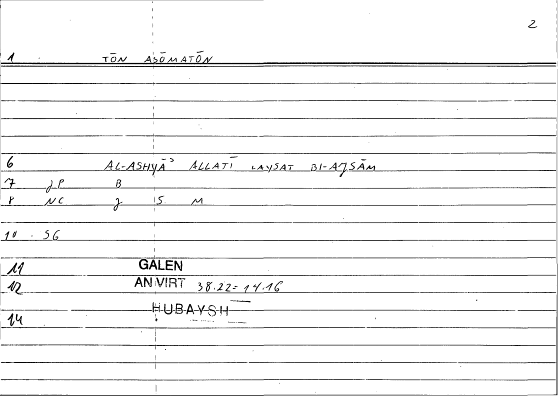 2
1 TŌN ASŌMATŌN
6 AL-ASHYĀʾ ALLATĪ LAYSAT BI-AJSĀM
7 JP B
8 NC J S M
10 SG
11 GALEN
12 AN VIRT 38.22 = 14.16
14 HUBAYSH